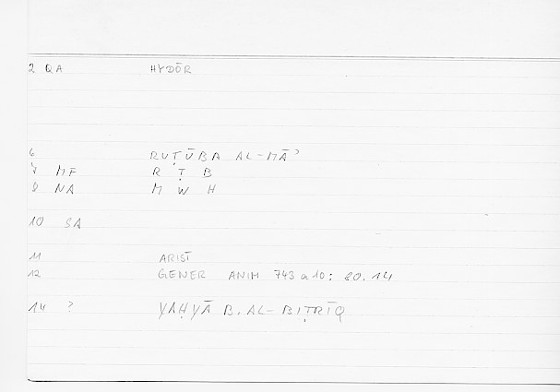 2 QA HYDŌR
6 RUṬŪBA AL-MĀʾ
7 MF R Ṭ B
8 NA M W H
10 SA
11 ARIST
12 GENER ANIM 743 a 10: 80.14
14 ? YAḤYĀ B. AL-BIṬRĪQ